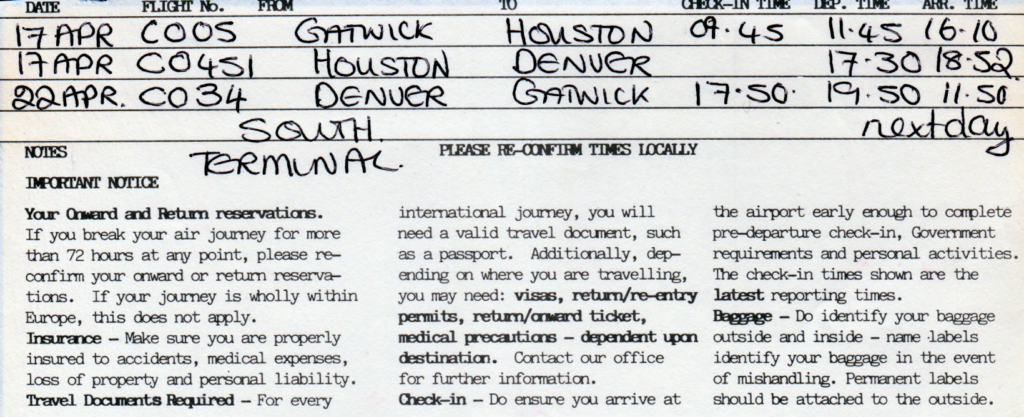 DATE FLIGHT No. FROM TO CHECK-IN TIME DEP. TIME ARR. TIME
17 APR CO05 GATWICK HOUSTON 09.45 11.45 16.10
17 APR CO451 HOUSTON DENVER 17.30 18.52
22 APR. CO34 DENVER GATWICK 17.50. 19.50 11.50
SOUTH. nextday
NOTES TERMINAL. PLEASE RE-CONFIRM TIMES LOCALLY
IMPORTANT NOTICE
Your Onward and Return reservations.
If you break your air journey for more
than 72 hours at any point, please re-
confirm your onward or return reserva-
tions. If your journey is wholly within
Europe, this does not apply.
Insurance - Make sure you are properly
insured to accidents, medical expenses,
loss of property and personal liability.
Travel Documents Required - For every
international journey, you will
need a valid travel document, such
as a passport. Additionally, dep-
ending on where you are travelling,
you may need: visas, return/re-entry
permits, return/onward ticket,
medical precautions - dependent upon
destination. Contact our office
for further information.
Check-in - Do ensure you arrive at
the airport early enough to complete
pre-departure check-in, Government
requirements and personal activities.
The check-in times shown are the
latest reporting times.
Baggage - Do identify your baggage
outside and inside - name labels
identify your baggage in the event
of mishandling. Permanent labels
should be attached to the outside.